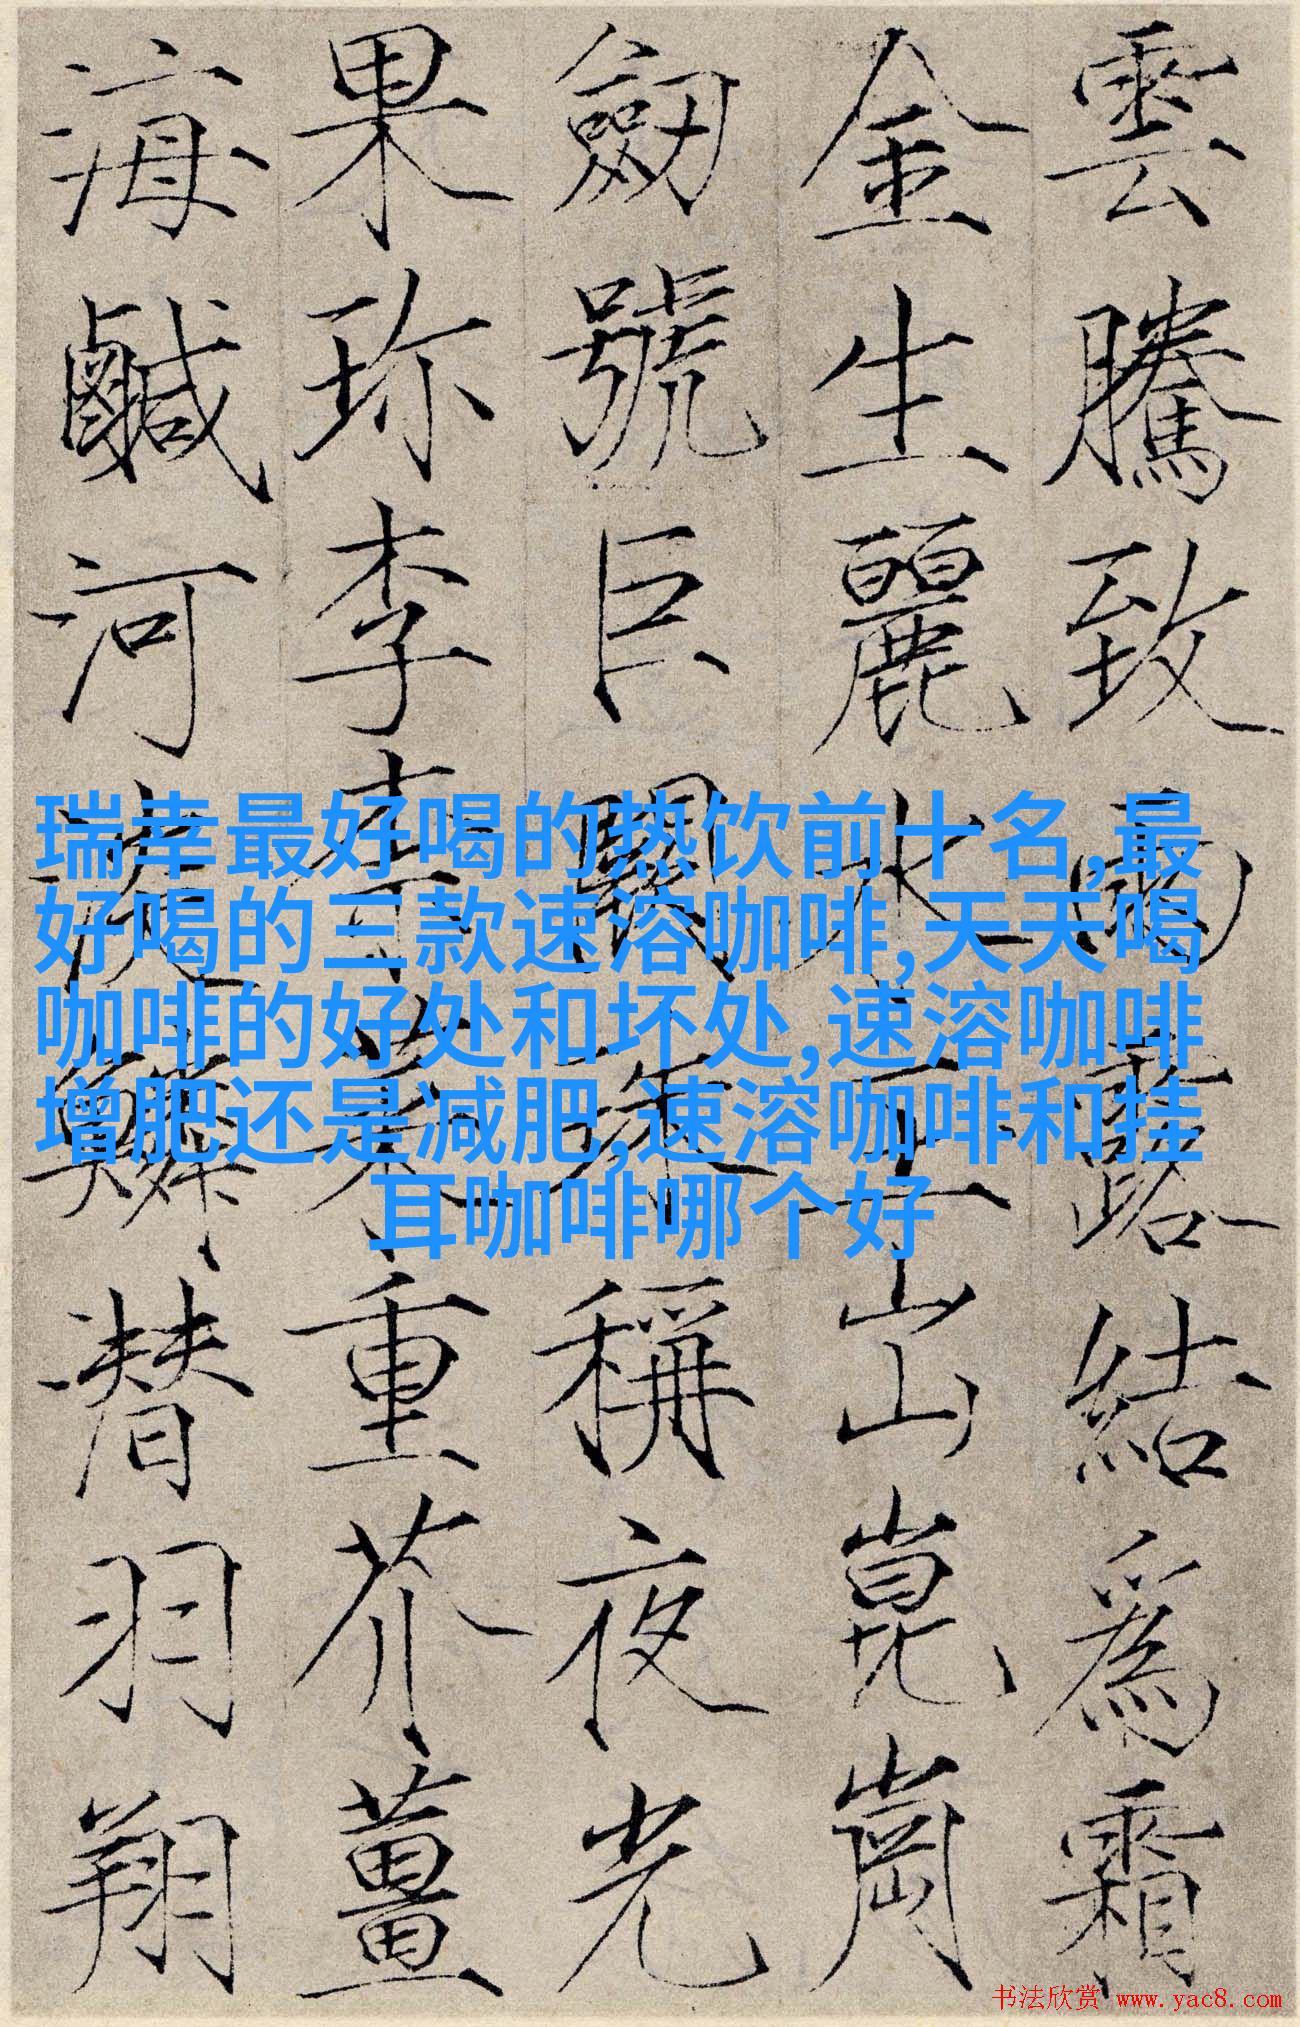 雲騰致雨露結爲霜
金生麗水玉出崑崗
劒號巨闕珠稱夜光
果珎李柰菜重芥薑
海鹹河淡鱗潜羽翔
瑞幸最好喝的热饮前十名,最
好喝的三款速溶咖啡,天天喝
咖啡的好处和坏处,速溶咖啡
增肥还是减肥,速溶咖啡和挂
耳咖啡哪个好
书法欣赏 www.yac8.com